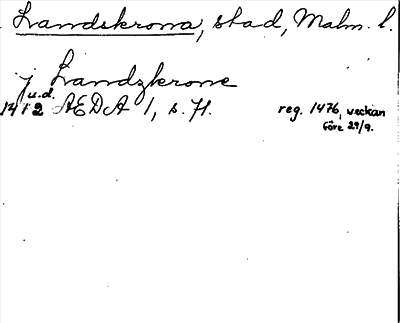 Landskrona, stad, Malm. l.
j Landzkrone
u.d.
1412 AEDA 1, s. 71. reg. 1476, veckan
före 29/9.